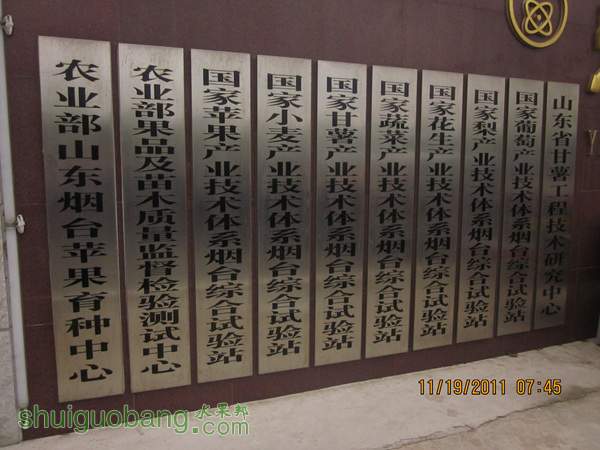 农业部山东烟台苹果育种中心
农业部果品及苗木质量监督检验测试中心
国家苹果产业技术体系烟台综合试验站
国家小麦产业技术体系烟台综合试验站
国家甘薯产业技术体系烟台综合试验站
国家蔬菜产业技术体系烟台综合试验站
国家花生产业技术体系烟台综合试验站
国家梨产业技术体系烟台综合试验站
国家葡萄产业技术体系烟台综合试验站
山东省甘薯工程技术研究中心
Y
11/19/2011 07:45
shuiguobang.com 水果邦